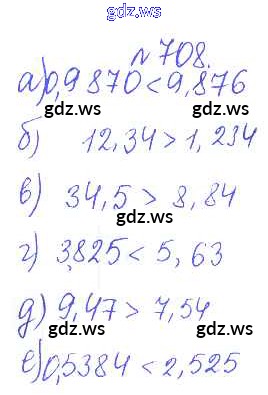 gdz.ws
№708.
а) 0,9870 < 9,876
gdz.ws gdz.ws
б) 12,34 > 1,234
gdz.ws
в) 34,5 > 8,84
gdz.ws
г) 3,825 < 5,63
gdz.ws
д) 9,47 > 7,54
gdz.ws gdz.ws
е) 0,5384 < 2,525